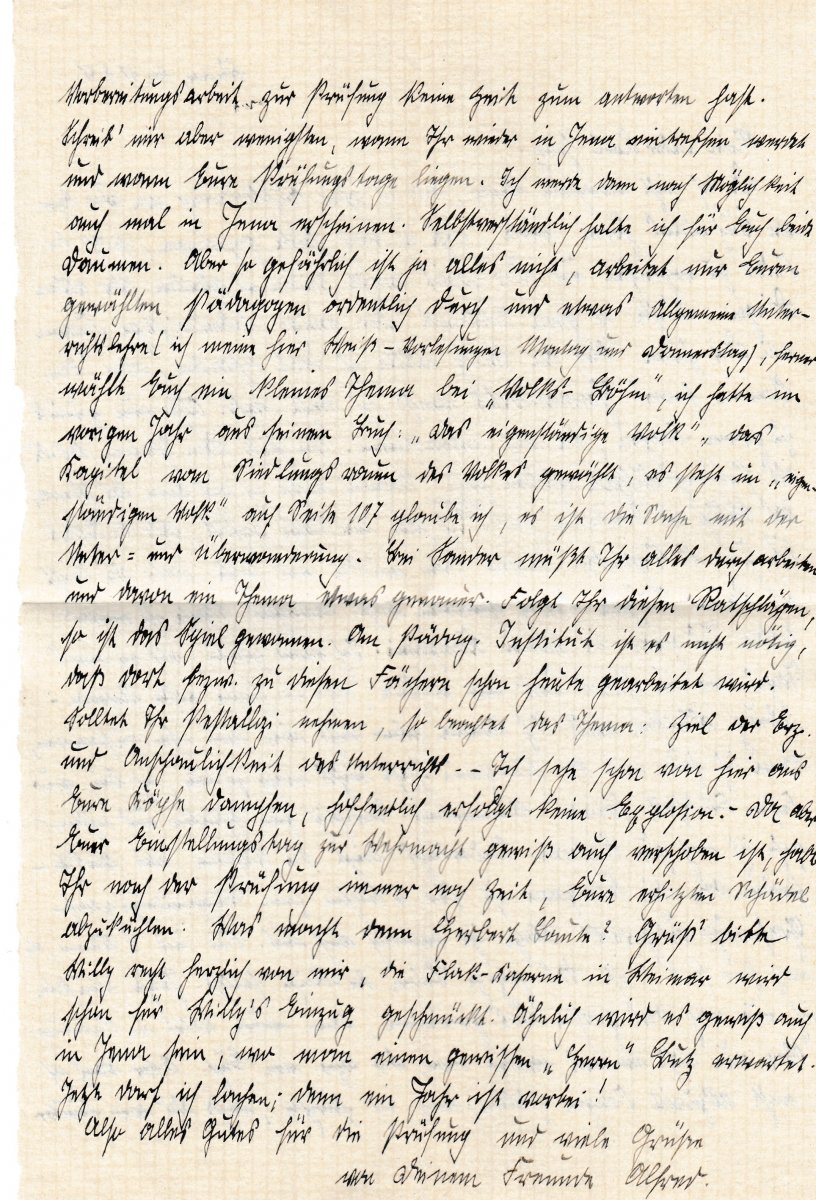 Vorbereitungsarbeit zur Prüfung keine Zeit zum antworten hast.
Schreib' mir aber wenigsten, wann Ihr wieder in Jena eintreffen werdet
und wann Eure Prüfungstage liegen. Ich werde dann nach Möglichkeit
auch mal in Jena erscheinen. Selbstverständlich halte ich für Euch beide
Daumen. Aber so gefährlich ist ja alles nicht, arbeitet nur Euren
gewählten Pädagogen ordentlich durch und etwas Allgemeine Unter-
richtslehre (ich meine hier Weiß-Vorlesungen Montag und Donnerstag), ferner
wählt Euch ein kleines Thema bei „Volks-Böhm", ich hatte im
vorigen Jahr aus seinem Buch: „Das eigenständige Volk" das
Kapitel vom Siedlungsraum des Volkes gewählt, es steht im „eigen-
ständigen Volk" auf Seite 107 glaube ich, es ist die Sache mit der
Unter- und Überwanderung. Bei Sander müßt Ihr alles durcharbeiten
und davon ein Thema etwas genauer. Folgt Ihr diesen Ratschlägen,
so ist das Spiel gewonnen. Am Pädag. Institut ist es nicht nötig,
daß dort bezw. zu diesen Fächern schon heute gearbeitet wird.
Solltet Ihr Pestallozi nehmen, so beachtet das Thema: Ziel der Erz.
und Anschaulichkeit des Unterrichts. – Ich sehe schon von hier aus
Eure Köpfe dampfen, hoffendlich erfolgt keine Explosion. – Da aber
Euer Einstellungstag zur Wehrmacht gewiß auch verschoben ist, habt
Ihr nach der Prüfung immer noch Zeit, Eure erhitzten Schädel
abzukühlen. Was macht denn Herbert Laute? Grüß' bitte
Willy recht herzlich von mir, die Flak-Kaserne in Weimar wird
schon für Willy's Einzug geschmückt. Ähnlich wird es gewiß auch
in Jena sein, wo man einen gewissen „Herrn" Butz erwartet.
Jetzt darf ich lachen; denn ein Jahr ist vorbei!
Also alles Gutes für die Prüfung und viele Grüße
von Deinem Freunde Alfred.